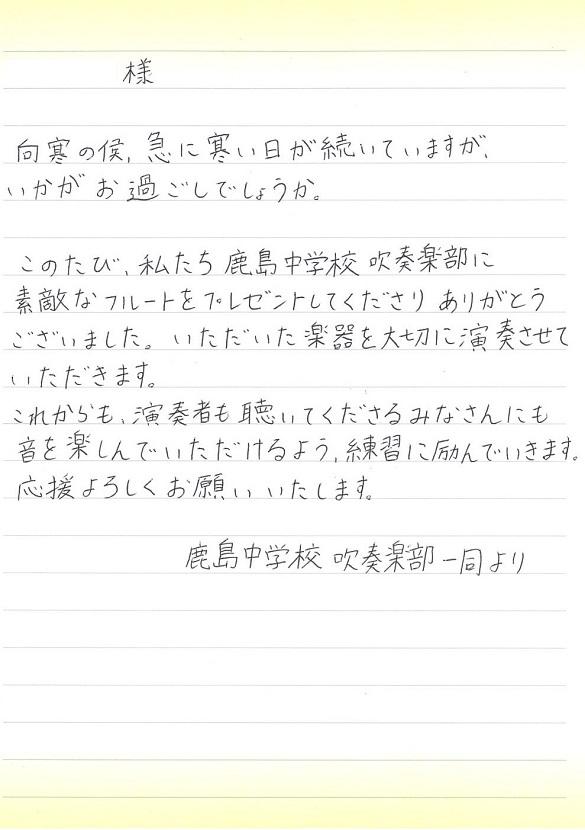 様
向寒の侯、急に寒い日が続いていますが、
いかがお過ごしでしょうか。
このたび、私たち鹿島中学校 吹奏楽部に
素敵なフルートをプレゼントしてくださり ありがとう
ございました。いただいた楽器を大切に演奏させて
いただきます。
これからも、演奏者も聴いてくださるみなさんにも
音を楽しんでいただけるよう、練習に励んでいきます。
応援よろしくお願いいたします。
鹿島中学校 吹奏楽部一同より